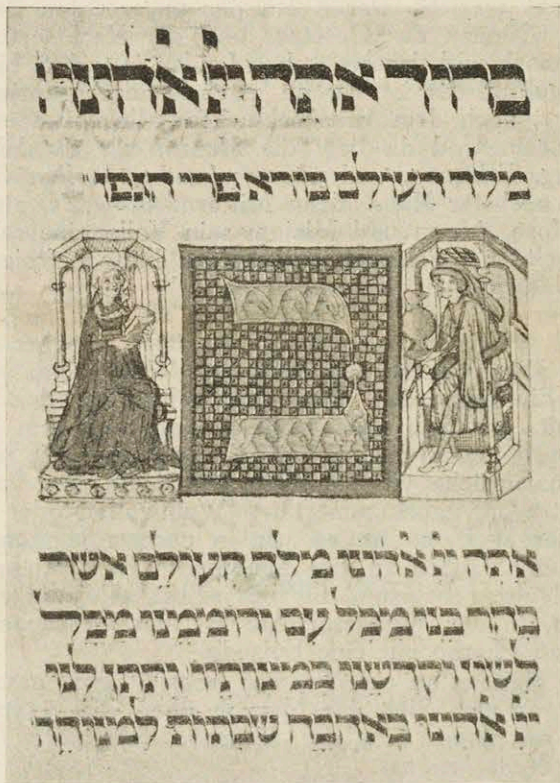 ברוך אתה יי אלהינו
מלך העולם בורא פרי הגפן
ב
אתה יי אלהינו מלך העולם אשר
בחר בנו מכל עם ורוממנו מכל
לשון וקדשנו במצותיו ותתן לנו
יי אלהינו באהבה שבתות למנוחה